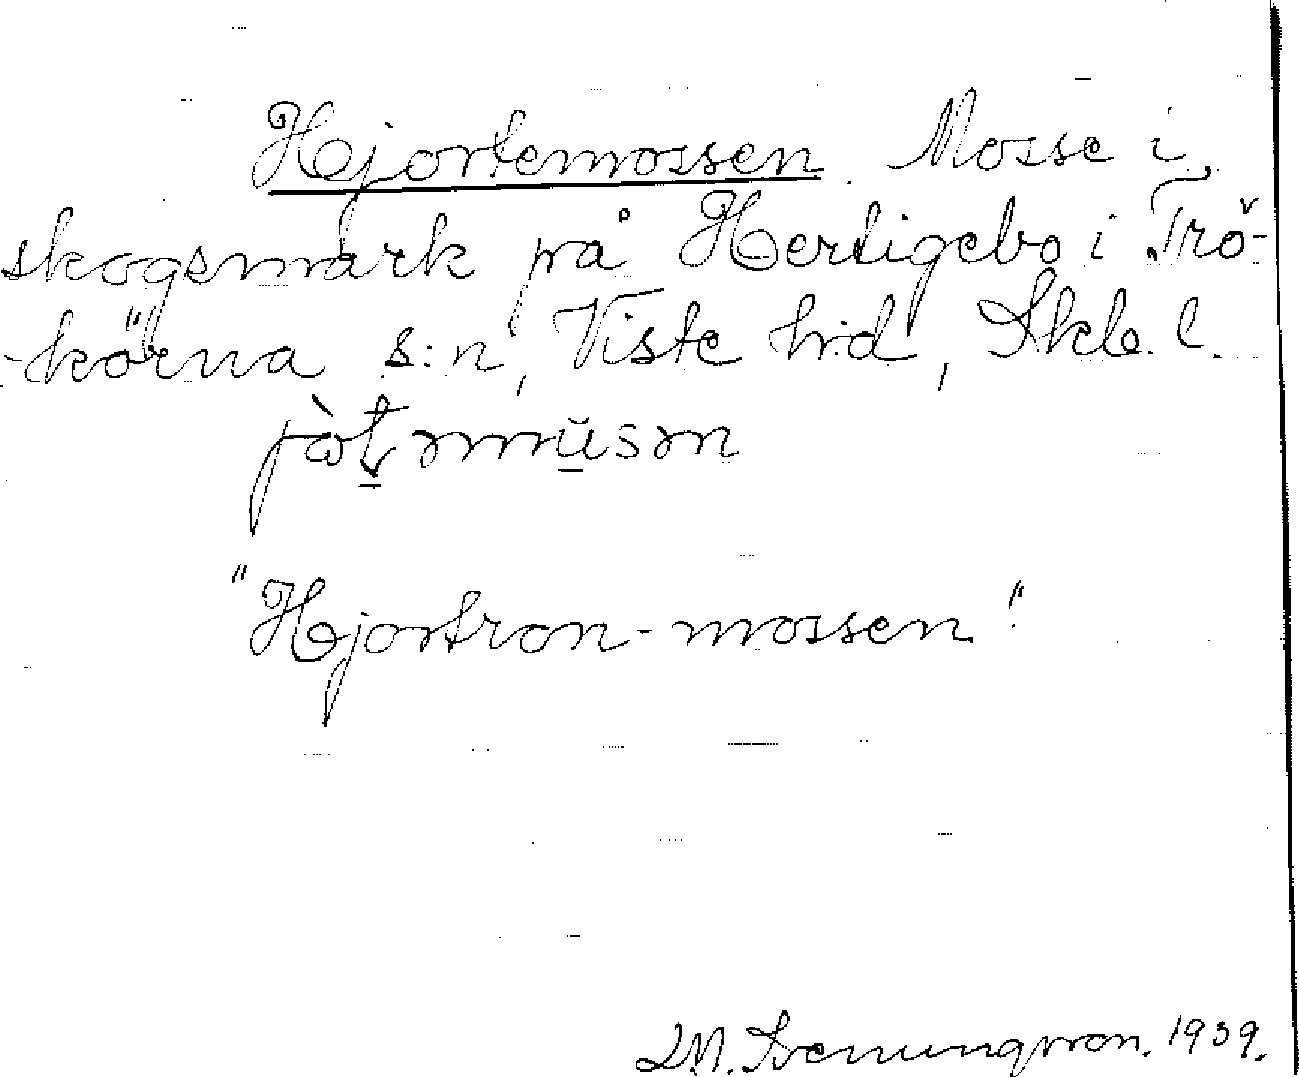 Hjortemossen. Mosse i
skogsmark på Hertigebo i Trö-
-körna s:n, Viste h:d, Skb. l.
jòt mmusm
"Hjortron-mossen".
D.M. Svenungsson. 1939.